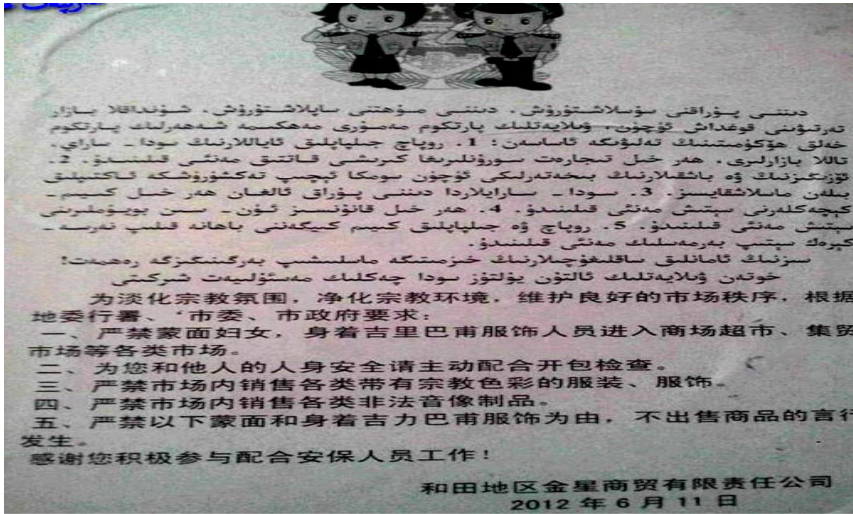 دىننىي پۇراقنى سۇسلاشتۇرۇش، دىننىي مۇھىتنى ساپلاشتۇرۇش، شۇنداقلا بازار
تەرتىۋىنى قوغداش ئۈچۈن، ۋىلايەتلىك پارتكوم مەمۇرى مەھكىمە شەھەرلىك پارتكوم
خەلق ھۆكۈمىتىنىڭ تەلىۋىگە ئاساسەن: 1. روپاچ جىلپاپلىق ئاياللارنىڭ سودا - ساراي،
تاللا بازارلىرى، ھەر خىل تىجارەت سورۇنلىرىغا كىرىشى قاتتىق مەنئى قىلىنىدۇ. 2.
ئۆزىڭىزنىڭ ۋە باشقىلارنىڭ بىخەتەرلىكى ئۈچۈن سومكا ئېچىپ تەكشۈرۈشكە ئاكتىپلىق
بىلەن ماسلاشقايسىز. 3. سودا - سارايلاردا دىننىي پۇراق ئالغان ھەر خىل كىيىم -
كېچەكلەرنى سېتىش مەنئى قىلىنىدۇ. 4. ھەر خىل قانۇنسىز ئۈن - سىن بويۇملىرىنى
سېتىش مەنئى قىلىنىدۇ. 5. روپاچ ۋە جىلپاپلىق كىيىم كىيگەننى باھانە قىلىپ نەرسە -
كېرەك سېتىپ بەرمەسلىك مەنئى قىلىنىدۇ.
سىزنىڭ ئامانلىق ساقلىغۇچىلارنىڭ خىزمىتىگە ماسلىشىپ بەرگىنىڭىزگە رەھمەت!
خوتەن ۋىلايەتلىك ئالتۇن يۇلتۇز سودا چەكلىك مەسئۇلىيەت شىركىتى
为淡化宗教氛围，净化宗教环境，维护良好的市场秩序，根据
地委行署、市委、市政府要求：
一、严禁蒙面妇女，身着吉里巴甫服饰人员进入商场超市、集贸
市场等各类市场。
二、为您和他人的人身安全请主动配合开包检查。
三、严禁市场内销售各类带有宗教色彩的服装、服饰。
四、严禁市场内销售各类非法音像制品。
五、严禁以下蒙面和身着吉力巴甫服饰为由，不出售商品的言行
发生。
感谢您积极参与配合安保人员工作！
和田地区金星商贸有限责任公司
2012 年 6 月 11 日